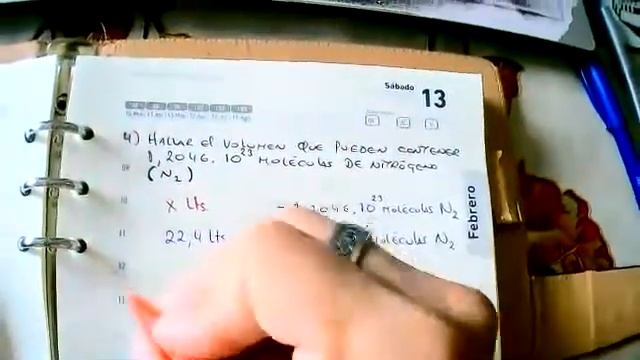 Sábado 13
4) HALLAR El VOLUMEN QUE PUEDEN CONTENER
1,2046. 10²³ MOLÉCULAS DE NITRÓGENO
(N₂)
X Lts. 1,2046. 10²³ MOLÉCULAS N₂
22,4 Lts MOLÉCULAS N₂
Febrero